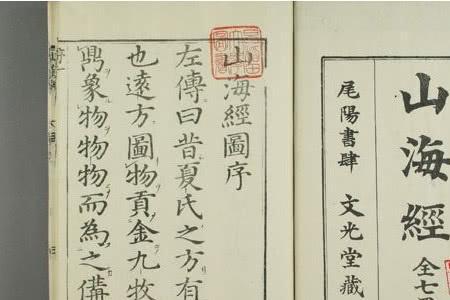 山海經全七
尾陽書肆 文光堂藏
山海經圖序
左傳曰昔夏氏之方有
也遠方圖物貢金九牧
鼎象物物物而為之備